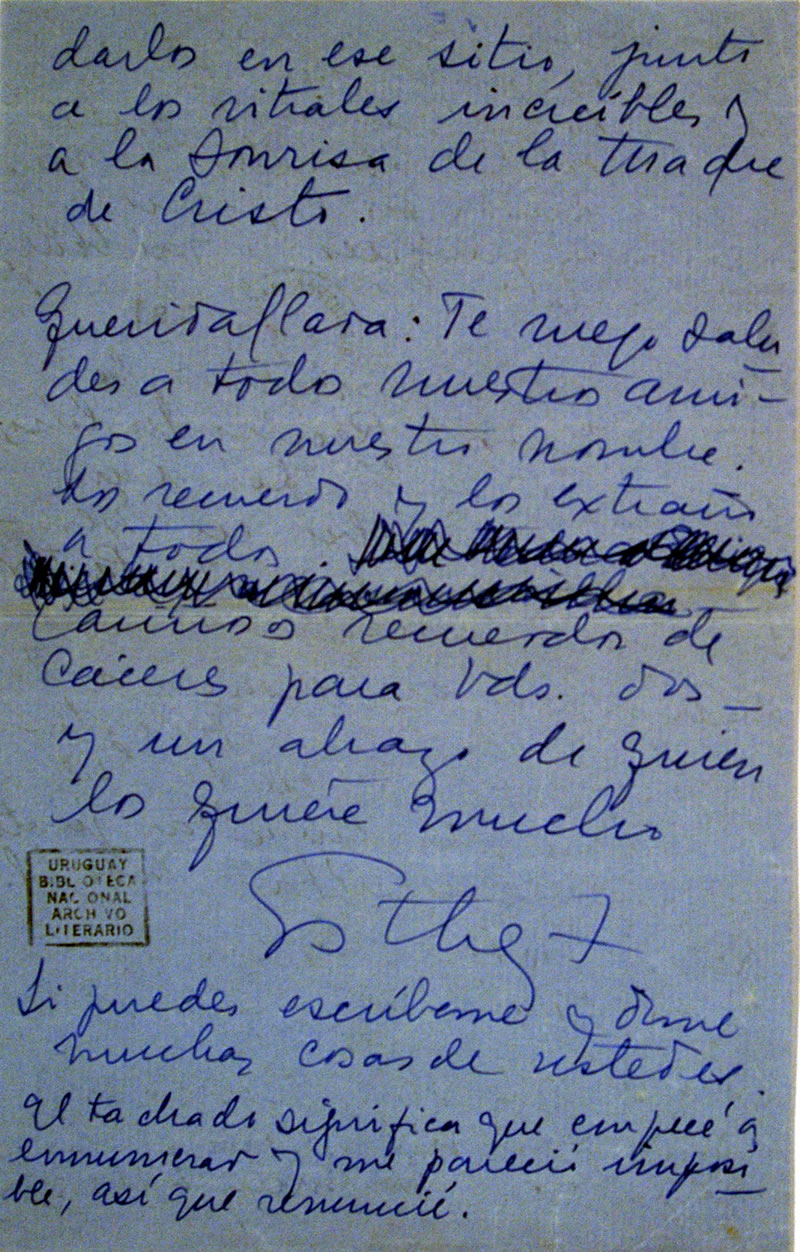 darlos en ese sitio, junto
a los vitrales increíbles y
a la sonrisa de la Madre
de Cristo.
Querida Clara: Te ruego salu
des a todos nuestros ami-
gos en nuestro nombre.
Los recuerdo y los extraño
a todos.
Cariñosos recuerdos de
Cáceres para Vds. dos -
y un abrazo de quien
los quiere mucho
Esther
URUGUAY
BIBLIOTECA
NACIONAL
ARCHIVO
LITERARIO
Si puedes escríbeme y dime
muchas cosas de ustedes.
El tachado significa que empecé a
enumerar y me pareció imposi
ble, así que renuncié.